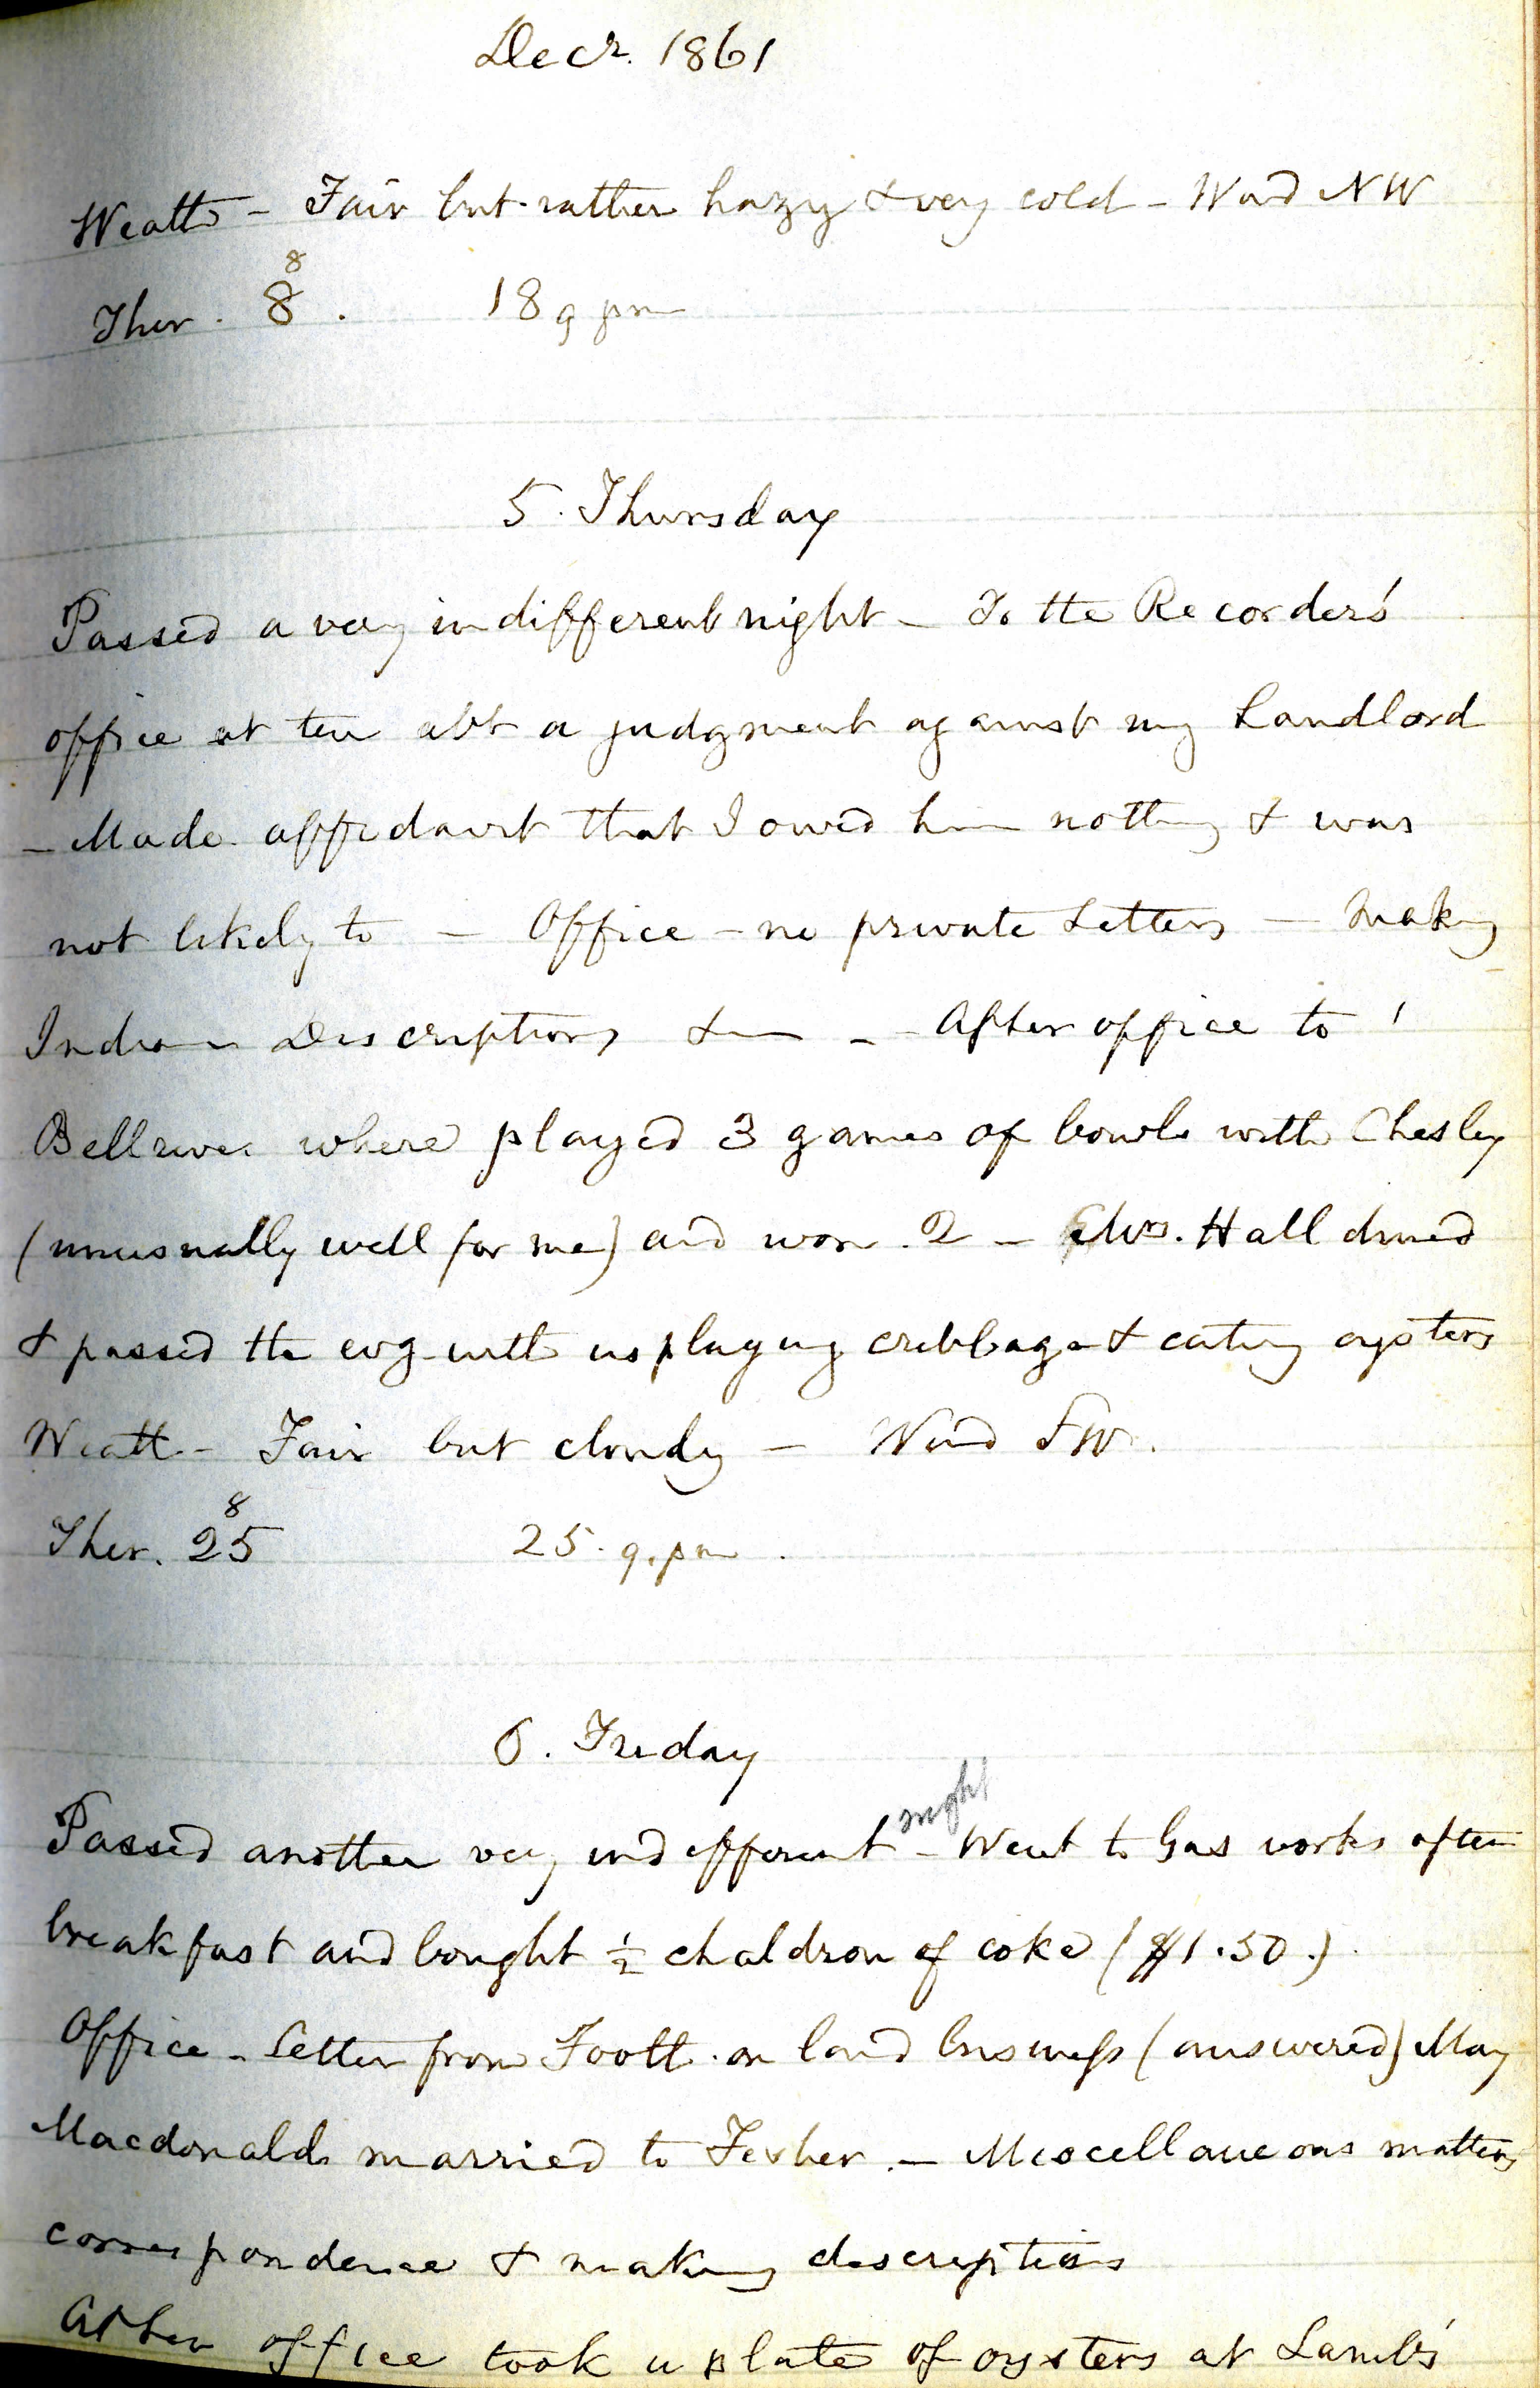 Decr. 1861
Weathr - Fair but rather hazy & very cold - Wind NW
8
Ther. 8. 18 9 pm
5. Thursday
Passed a very indifferent night - To the Recorder's
office at ten abt a judgment against my Landlord
- Made affidavit that I owed him nothing & was
not likely to - Office - no private Letters - making
Indian Descriptions - After office to
where played 3 games of bowls with Chesley
(unusually well for me) and won 2 - Mrs. Hall dined
& passed the evg with us playing cribbage & eating oysters
Weath - Fair but cloudy - Wind SW.
8
Ther. 25 25. 9. pm.
6. Friday
night
Passed another very indifferent - Went to Gas works after
breakfast and bought ½ chaldron of coke ($1.50.)
Office - Letter from Foott. on land business (answered) May
Macdonald married to - Miscellaneous matters
correspondence & making descriptions
After office took a plate of oysters at Lamb's